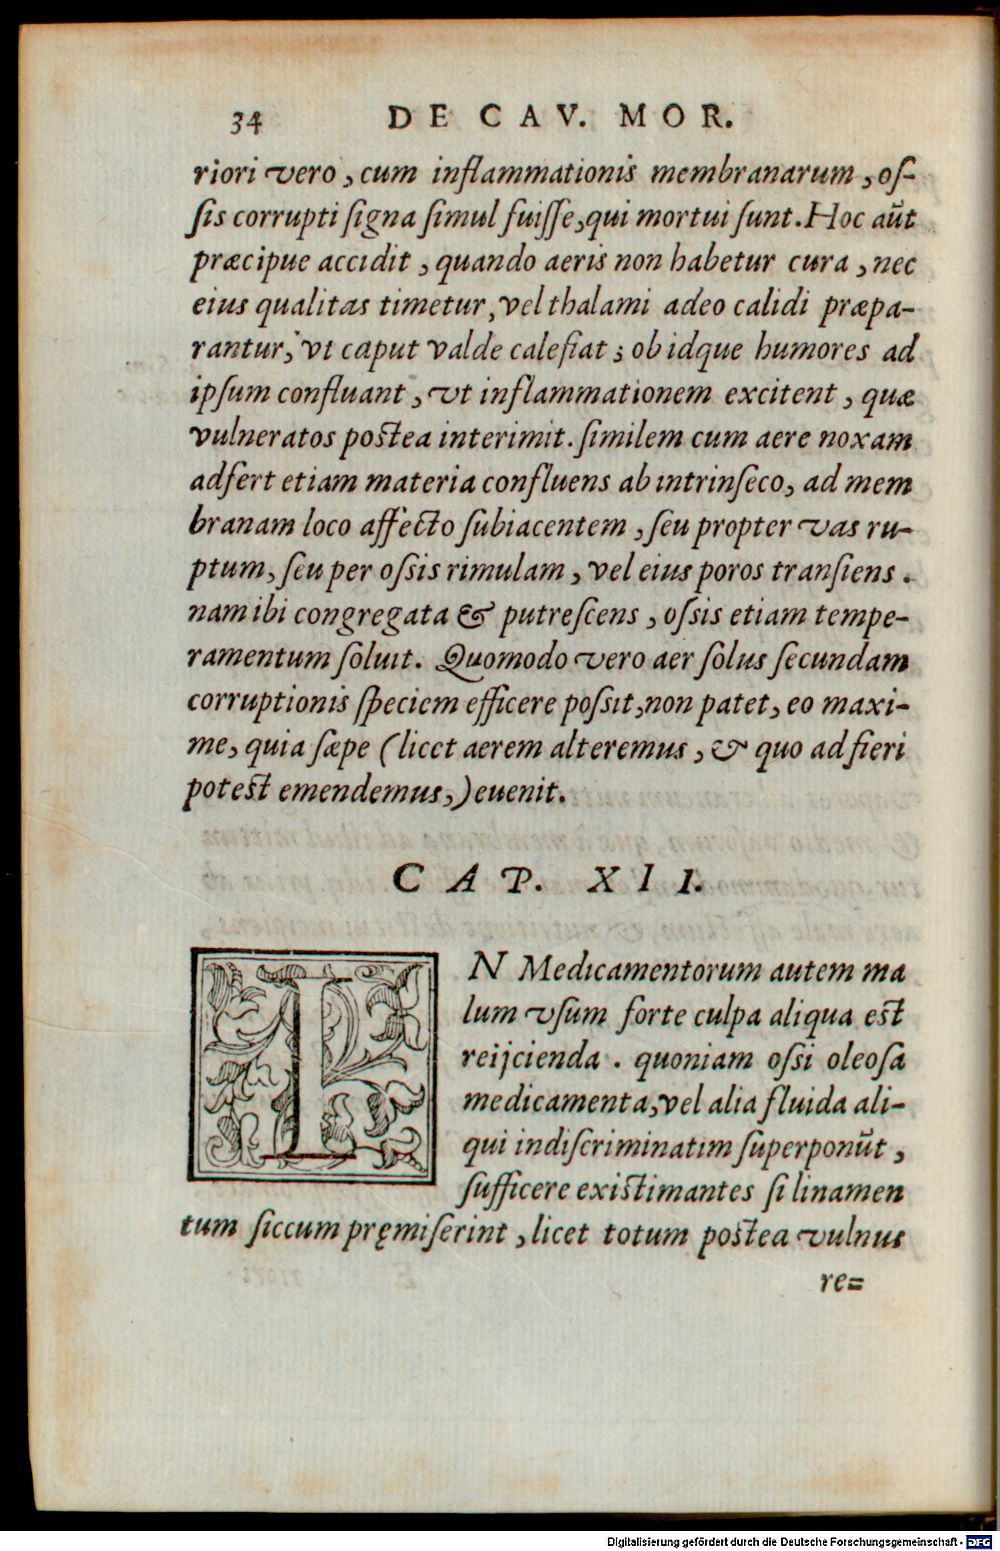 34 DE CAV. MOR.
riori vero, cum inflammationis membranarum, oſ-
ſis corrupti ſigna ſimul fuiſſe, qui mortui ſunt. Hoc aūt
præcipue accidit, quando aeris non habetur cura, nec
eius qualitas timetur, vel thalami adeo calidi præpa-
rantur, vt caput valde calefiat; ob idque humores ad
ipſum confluant, vt inflammationem excitent, quæ
vulneratos poſtea interimit. ſimilem cum aere noxam
adfert etiam materia confluens ab intrinſeco, ad mem
branam loco affecto ſubiacentem, ſeu propter vas ru-
ptum, ſeu per oſsis rimulam, vel eius poros tranſiens.
nam ibi congregata & putreſcens, oſsis etiam tempe-
ramentum ſoluit. Quomodo vero aer ſolus ſecundam
corruptionis ſpeciem efficere poſsit, non patet, eo maxi-
me, quia ſæpe (licet aerem alteremus, & quo ad fieri
poteſt emendemus,) euenit.
CAP. XII.
IN Medicamentorum autem ma
lum vſum forte culpa aliqua eſt
reijcienda. quoniam oſsi oleoſa
medicamenta, vel alia fluida ali-
qui indiſcriminatim ſuperponūt,
ſufficere exiſtimantes ſi linamen
tum ſiccum pręmiſerint, licet totum poſtea vulnus
re=
Digitalisierung gefördert durch die Deutsche Forschungsgemeinschaft - DFG